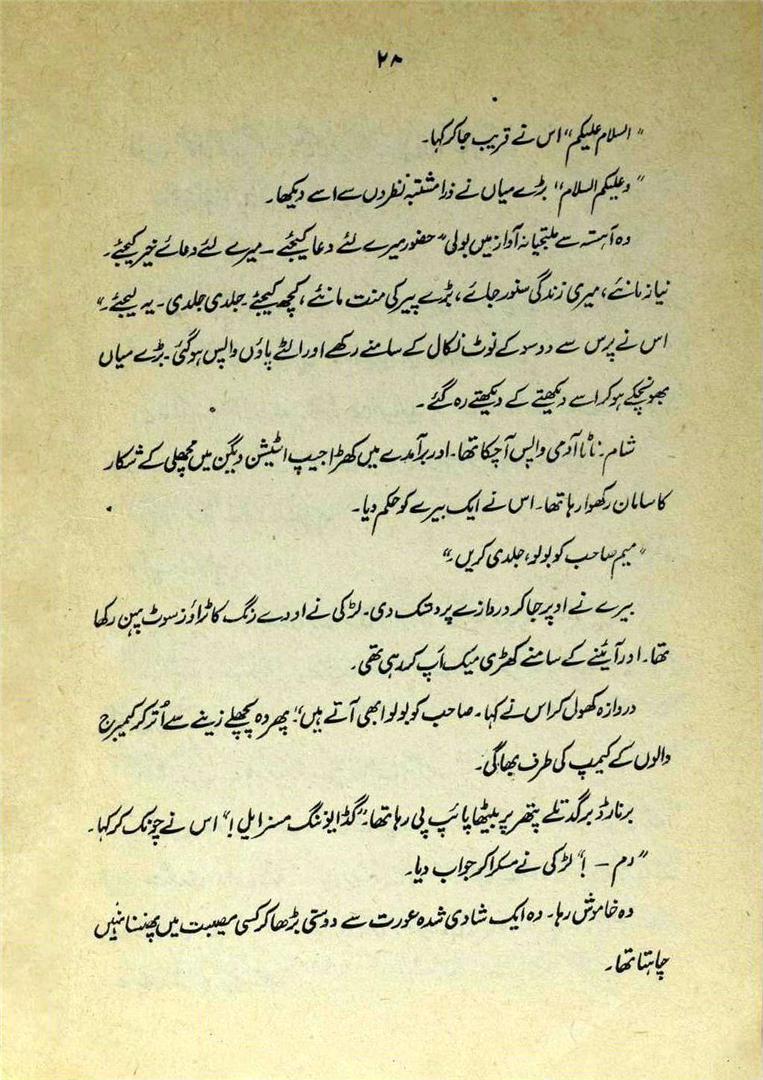 ۲۸
"السلام علیکم" اس نے قریب جا کر کہا۔
"وعلیکم السلام" بڑے میاں نے ذرا مشتبہ نظروں سے اسے دیکھا۔
وہ آہستہ سے ملتجیانہ آواز میں بولی "حضور میرے لئے دعا کیجئے ـ میرے لئے دعائے خیر کیجئے۔
نیاز مانئے، میری زندگی سنور جائے، بڑے پیر کی منت مانئے، کچھ کیجئے۔ جلدی جلدی۔ یہ لیجئے۔"
اس نے پرس سے دو سو کے نوٹ نکال کے سامنے رکھے اور الٹے پاؤں واپس ہوگئی۔ بڑے میاں
بھونچکے ہو کر اسے دیکھتے کے دیکھتے رہ گئے۔
شام: ناٹا آدمی واپس آ چکا تھا۔ اور برآمدے میں کھڑا جیپ اسٹیشن ویگن میں مچھلی کے شکار
کا سامان رکھوا رہا تھا۔ اس نے ایک بیرے کو حکم دیا۔
"میم صاحب کو بولو، جلدی کریں۔"
بیرے نے اوپر جا کر دروازے پر دستک دی۔ لڑکی نے اودے رنگ کا ٹراؤزر سوٹ پہن رکھا
تھا۔ اور آئینے کے سامنے کھڑی میک اَپ کر رہی تھی۔
دروازہ کھول کر اس نے کہا۔ صاحب کو بولو ابھی آتے ہیں"۔ پھر وہ پچھلے زینے سے اُتر کر کیمبرج
والوں کے کیمپ کی طرف بھاگی۔
برنارڈ برگد تلے پتھر پر بیٹھا پائپ پی رہا تھا۔ "گڈ ایوننگ مسز ایل !" اس نے چونک کر کہا۔
"دم ـ !" لڑکی نے مسکرا کر جواب دیا۔
وہ خاموش رہا۔ وہ ایک شادی شدہ عورت سے دوستی بڑھا کر کسی مصیبت میں پھنسنا نہیں
چاہتا تھا۔